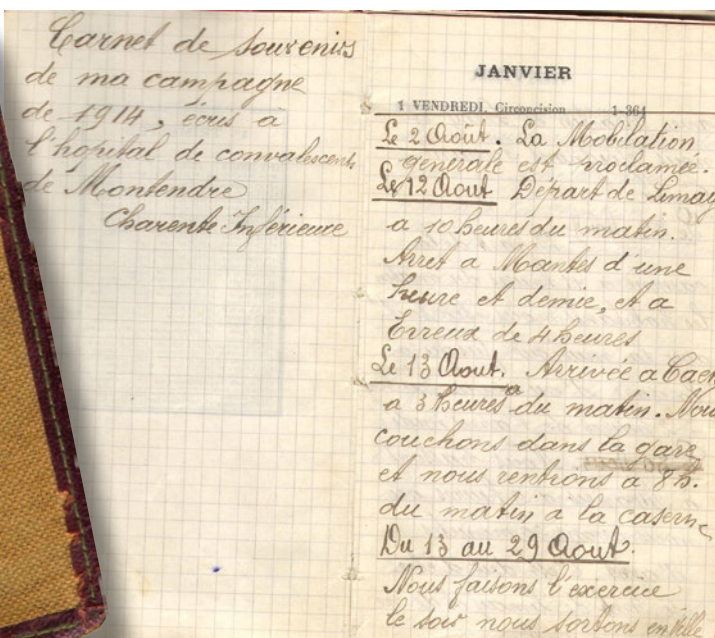 Carnet de souvenirs
de ma campagne
de 1914, écris a
l'hopital de convalescents
de Montendre
Charente Inférieure
JANVIER
1 VENDREDI, Circoncision 1-364
Le 2 Août. La Mobilation
générale est proclamée.
Le 12 Aout Départ de Limay
a 10 heures du matin.
Arret a Mantes d'une
heure et demie, et a
Evreux de 4 heures
Le 13 Aout. Arrivée a Caen
a 3 heures du matin. Nous
couchons dans la gare
et nous rentrons a 8h.
du matin a la caserne
Du 13 au 29 Aout.
Nous faisons l'exercice
le soir nous sortons en ville